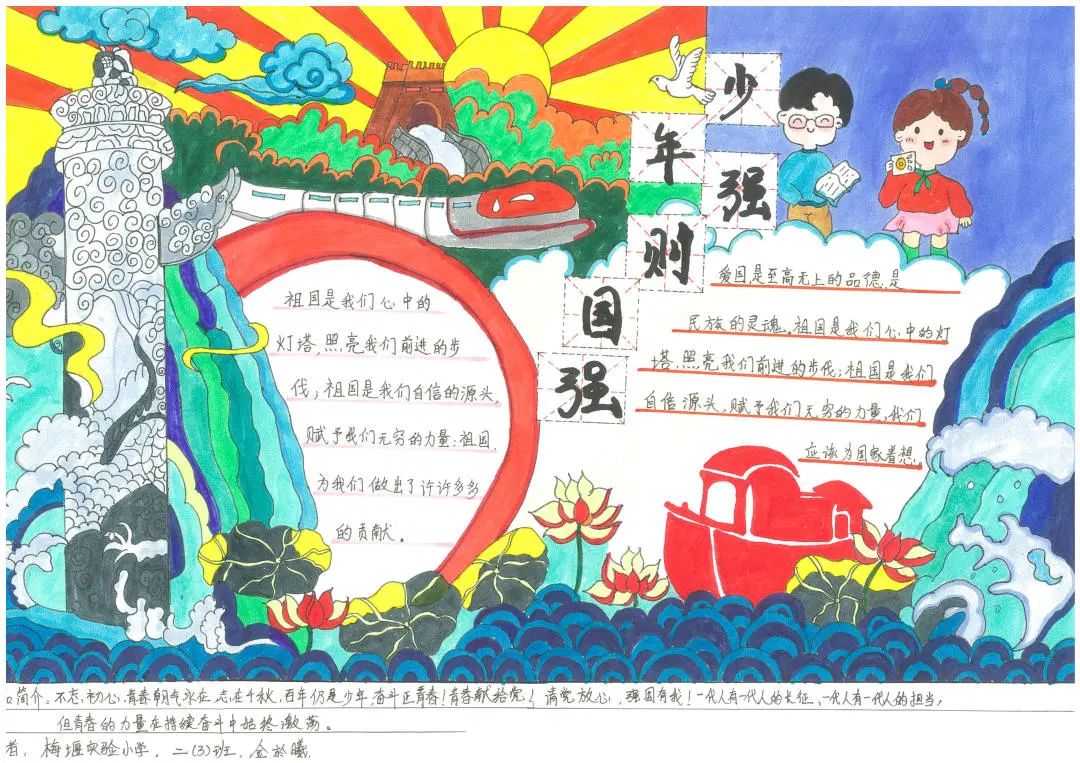 少年强则国强
祖国是我们心中的
灯塔,照亮我们前进的步
伐;祖国是我们自信的源头,
赋予我们无穷的力量;祖国
为我们做出了许许多多
的贡献。
爱国是至高无上的品德,是
民族的灵魂。祖国是我们心中的灯
塔,照亮我们前进的步伐;祖国是我们
自信源头,赋予我们无穷的力量,我们
应该为国家着想。
简介:不忘初心,青春朝气永在,志在千秋,百年仍是少年,奋斗正青春!青春献给党!请党放心,强国有我!一代人有一代人的长征,一代人有一代人的担当,
但青春的力量在持续奋斗中始终激荡。
者:梅堰实验小学,二(3)班,金於曦